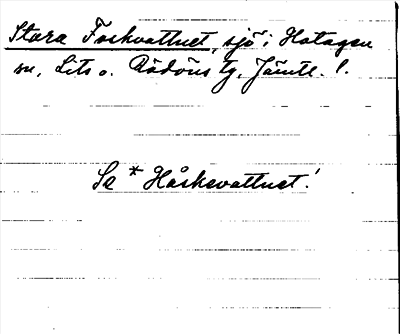 Stora Foskvattnet, sjö i Hotagen
sn, Lits o. Rödöns tg, Jämtl. l.
Se *Håskevattnet!